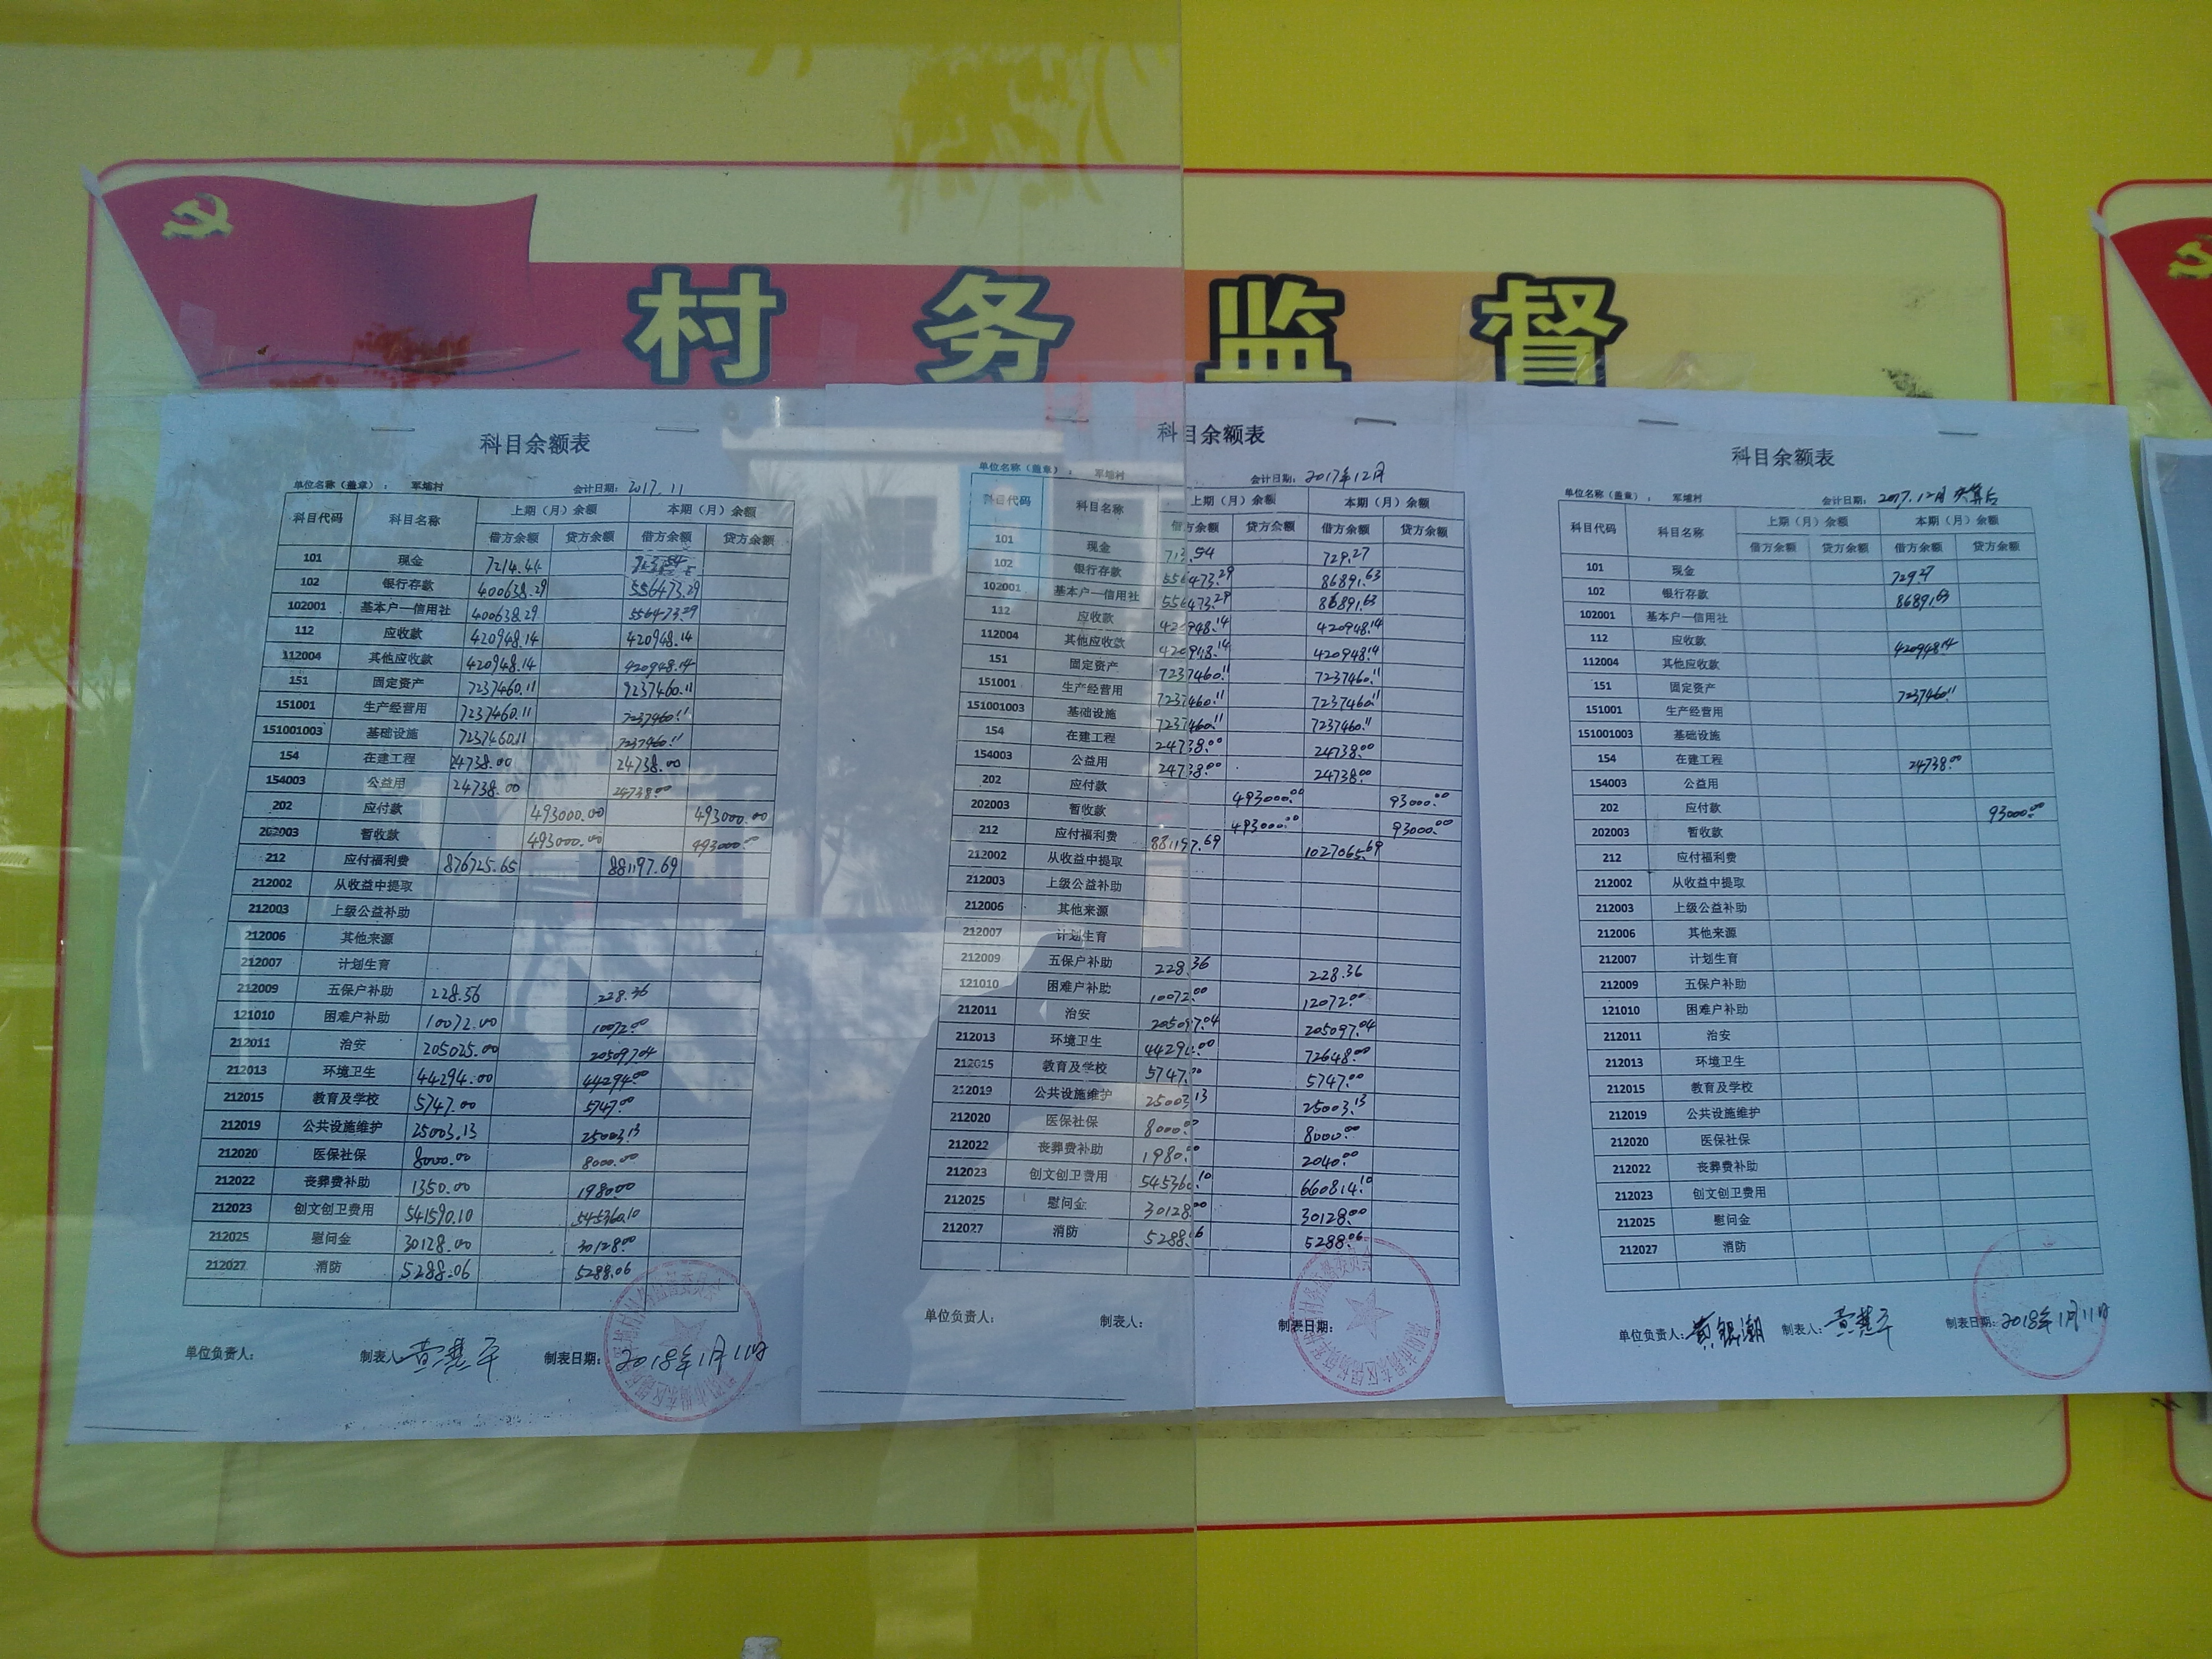 村务监督
科目余额表
单位名称（盖章）： 军埔村 会计日期: 2017.11
科目代码 科目名称 上期（月）余额 本期（月）余额
借方余额 贷方余额 借方余额 贷方余额
101 现金 7214.45
102 银行存款 400638.29 556473.29
102001 基本户一信用社 400638.29 556473.29
112 应收款 420948.14 420948.14
112004 其他应收款 420948.14 420948.14
151 固定资产 7237460.11 7237460.11
151001 生产经营用 7237460.11 7237460.11
151001003 基础设施 7237460.11 7237460.11
154 在建工程 24738.00 24738.00
154003 公益用 24738.00 24738.00
202 应付款 493000.00 493000.00
202003 暂收款 493000.00 493000.00
212 应付福利费 876725.65 881197.69
212002 从收益中提取
212003 上级公益补助
212006 其他来源
212007 计划生育
212009 五保户补助 228.36 228.36
121010 困难户补助 10072.00 10072.00
212011 治安 205025.00 205097.04
212013 环境卫生 44294.00 44294.00
212015 教育及学校 5747.00 5747.00
212019 公共设施维护 25003.13 25003.13
212020 医保社保 8000.00 8000.00
212022 丧葬费补助 1350.00 1980.00
212023 创文创卫费用 541590.10 545360.10
212025 慰问金 30128.00 30128.00
212027 消防 5288.06 5288.06
单位负责人: 制表人: 制表日期: 2018年1月11日
科目余额表
单位名称（盖章）： 军埔村 会计日期: 2017年12月
科目代码 科目名称 上期（月）余额 本期（月）余额
借方余额 贷方余额 借方余额 贷方余额
101 现金 713.54 729.27
102 银行存款 556473.29 86891.63
102001 基本户一信用社 556473.29 86891.63
112 应收款 420948.14 420948.14
112004 其他应收款 420948.14 420948.14
151 固定资产 7237460.11 7237460.11
151001 生产经营用 7237460.11 7237460.11
151001003 基础设施 7237460.11 7237460.11
154 在建工程 24738.00 24738.00
154003 公益用 24738.00 24738.00
202 应付款 493000.00 93000.00
202003 暂收款 493000.00 93000.00
212 应付福利费 881197.69 1027065.69
212002 从收益中提取
212003 上级公益补助
212006 其他来源
212007 计划生育
212009 五保户补助 228.36 228.36
121010 困难户补助 10072.00 12072.00
212011 治安 205097.04 205097.04
212013 环境卫生 44294.00 72648.00
212015 教育及学校 5747.00 5747.00
212019 公共设施维护 25003.13 25003.13
212020 医保社保 8000.00 8000.00
212022 丧葬费补助 1980.00 2040.00
212023 创文创卫费用 545360.10 660814.10
212025 慰问金 30128.00 30128.00
212027 消防 5288.06 5288.06
单位负责人: 制表人: 制表日期:
科目余额表
单位名称（盖章）： 军埔村 会计日期: 2017.12月决算后
科目代码 科目名称 上期（月）余额 本期（月）余额
借方余额 贷方余额 借方余额 贷方余额
101 现金 729.27
102 银行存款 86891.63
102001 基本户一信用社
112 应收款 420948.14
112004 其他应收款
151 固定资产 7237460.11
151001 生产经营用
151001003 基础设施
154 在建工程 24738.00
154003 公益用
202 应付款 93000.00
202003 暂收款
212 应付福利费
212002 从收益中提取
212003 上级公益补助
212006 其他来源
212007 计划生育
212009 五保户补助
121010 困难户补助
212011 治安
212013 环境卫生
212015 教育及学校
212019 公共设施维护
212020 医保社保
212022 丧葬费补助
212023 创文创卫费用
212025 慰问金
212027 消防
单位负责人: 制表人: 制表日期: 2018年1月11日